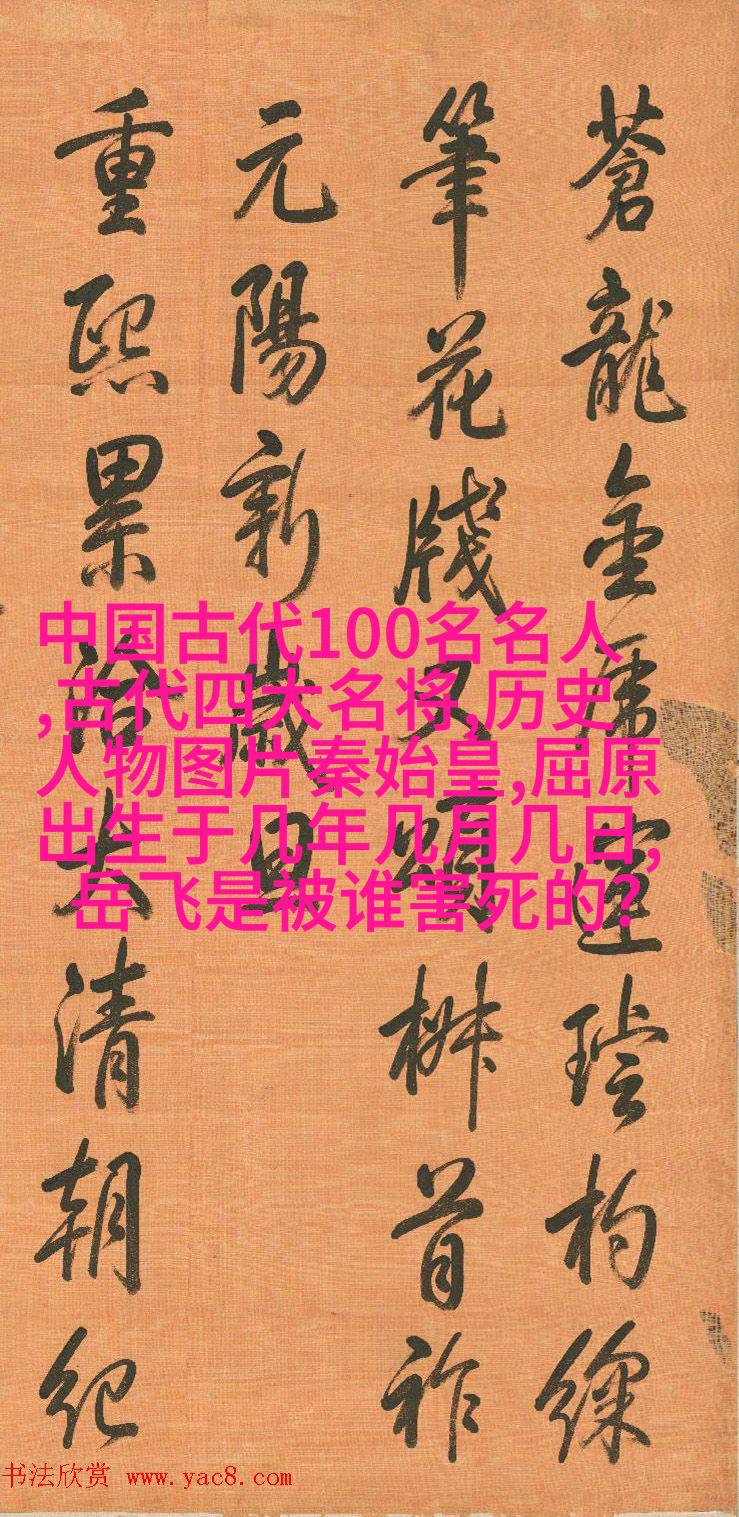 蒼龍金虎運璿杓綵
筆花牋又頌椒首祚
元陽新歲旦
重熙累洽太清朝紀
中国古代100名名人
,古代四大名将,历史
人物图片秦始皇,屈原
出生于几年几月几日,
岳飞是被谁害死的?
书法欣赏 www.yac8.com